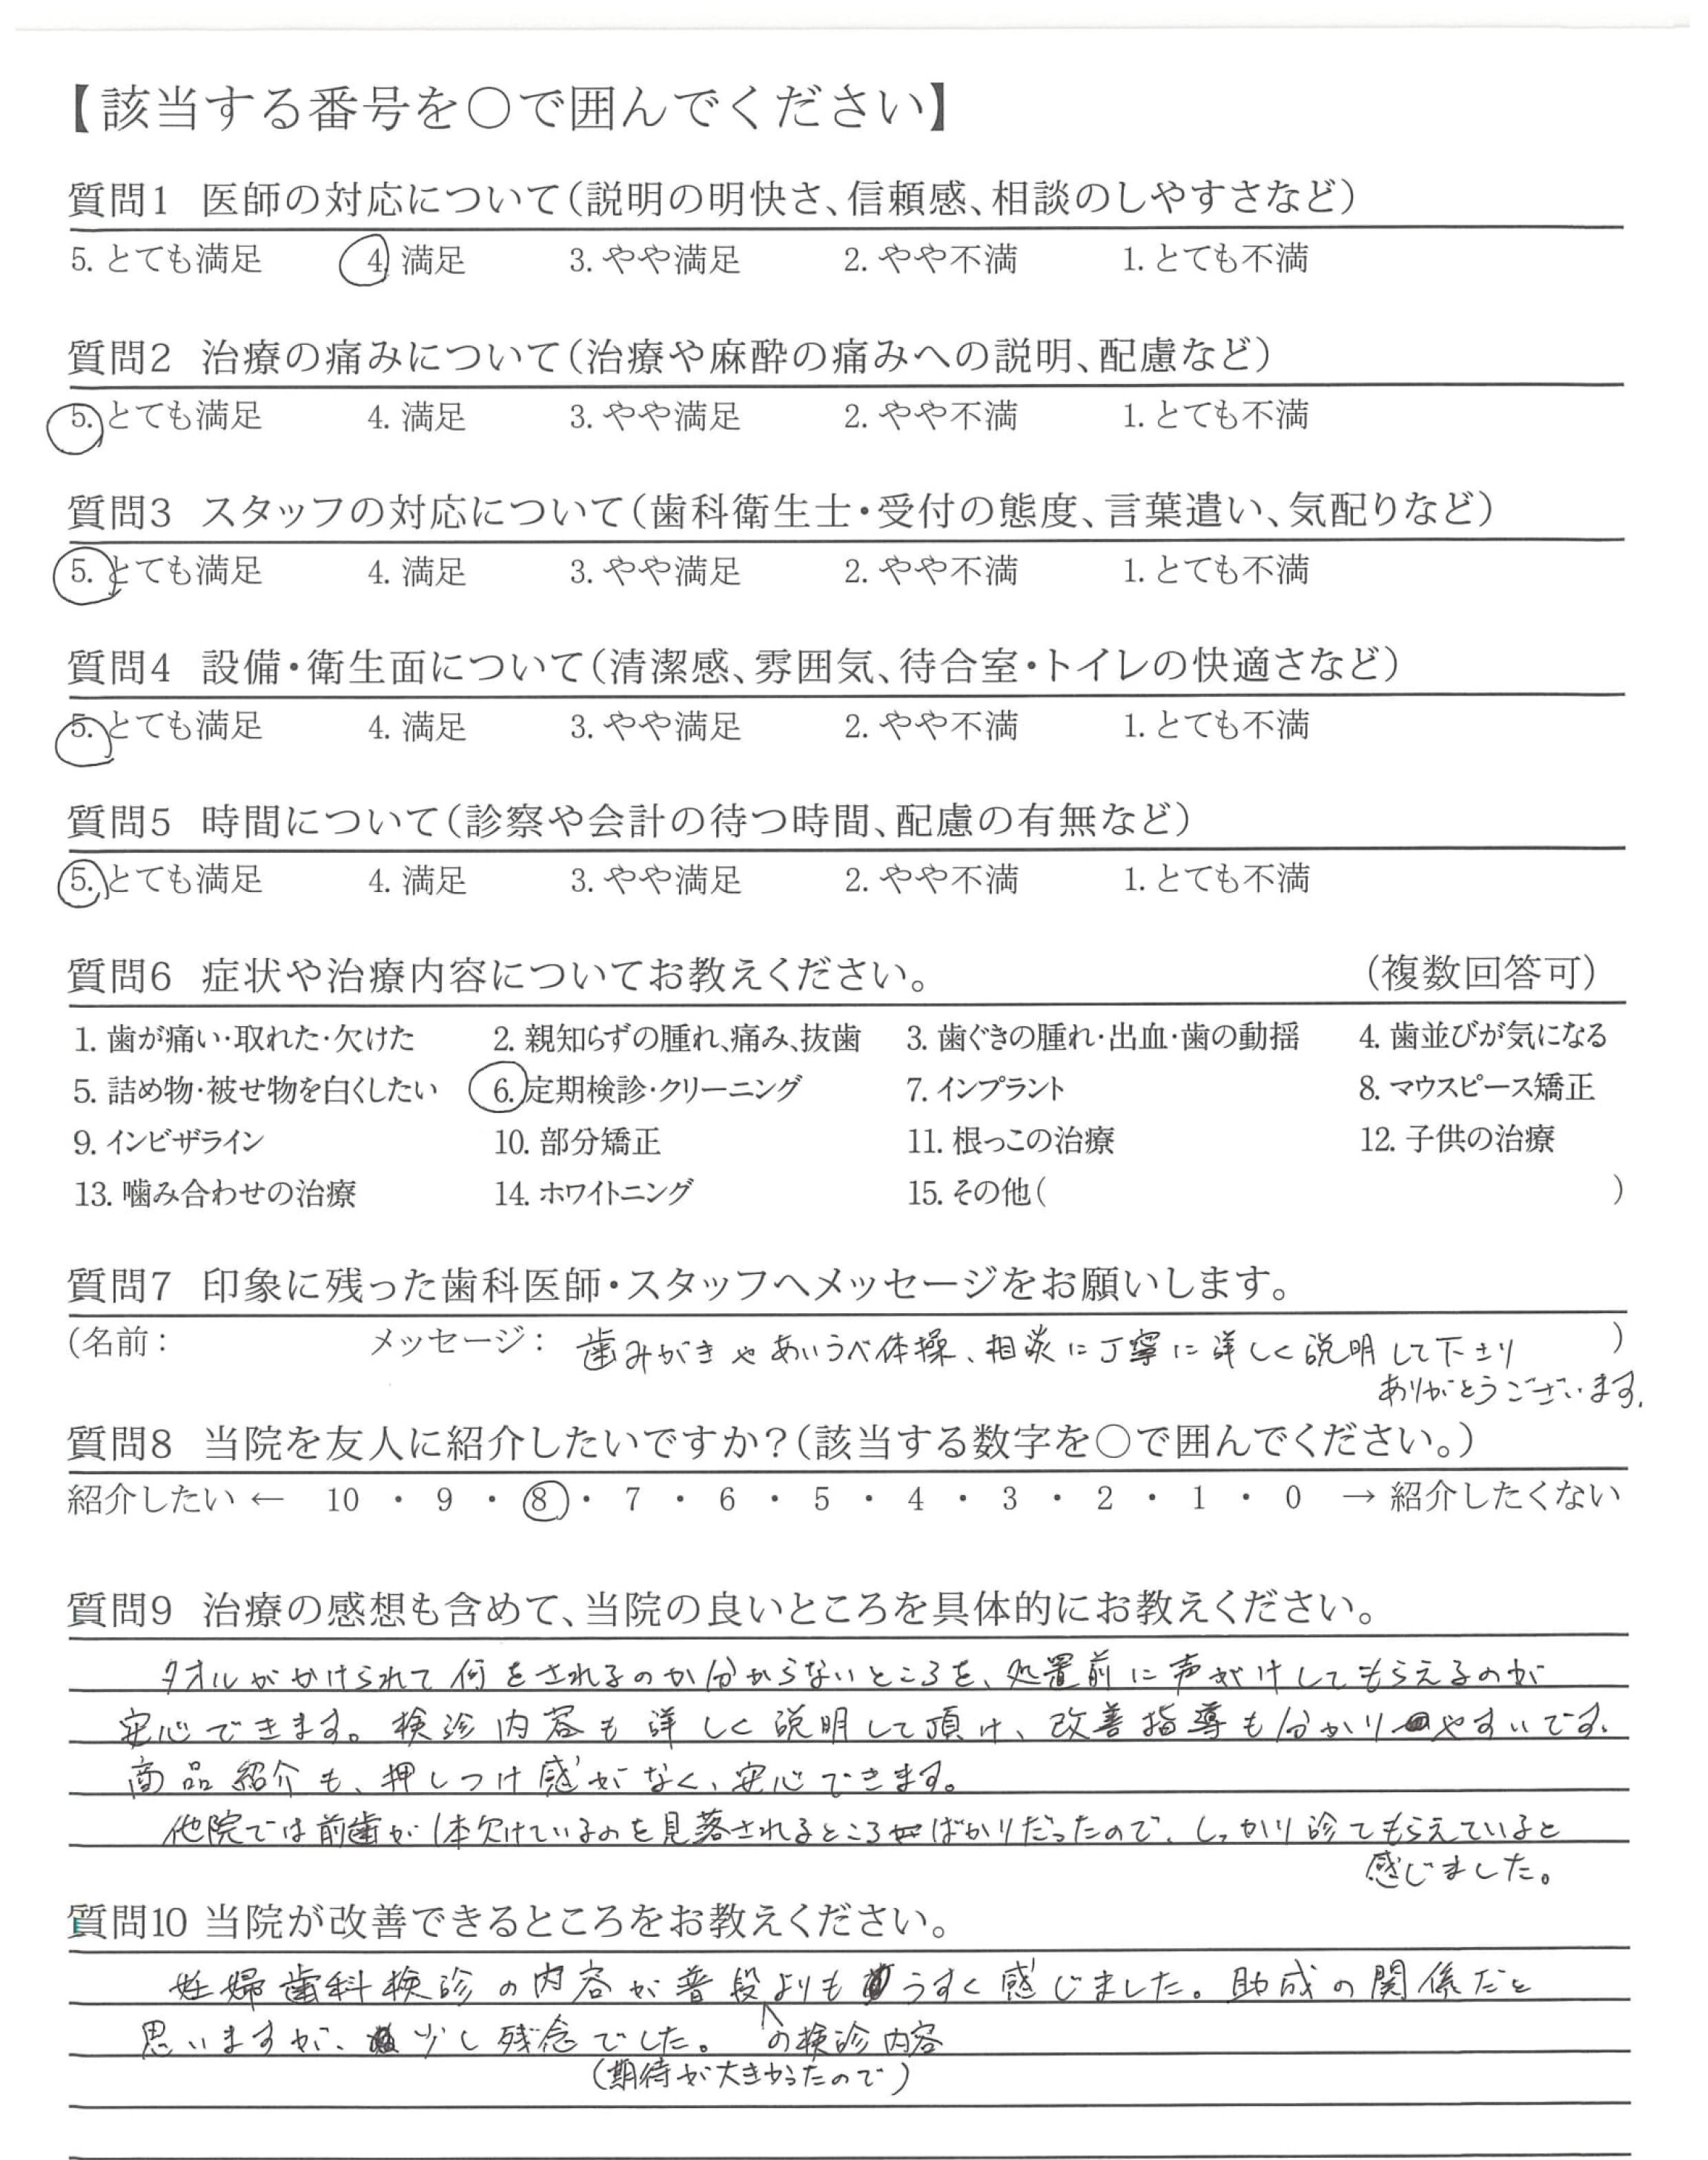 【該当する番号を○で囲んでください】
質問1 医師の対応について(説明の明快さ、信頼感、相談のしやすさなど)
5. とても満足 4. 満足 3. やや満足 2. やや不満 1. とても不満
質問2 治療の痛みについて(治療や麻酔の痛みへの説明、配慮など)
5. とても満足 4. 満足 3. やや満足 2. やや不満 1. とても不満
質問3 スタッフの対応について(歯科衛生士・受付の態度、言葉遣い、気配りなど)
5. とても満足 4. 満足 3. やや満足 2. やや不満 1. とても不満
質問4 設備・衛生面について(清潔感、雰囲気、待合室・トイレの快適さなど)
5. とても満足 4. 満足 3. やや満足 2. やや不満 1. とても不満
質問5 時間について(診察や会計の待つ時間、配慮の有無など)
5. とても満足 4. 満足 3. やや満足 2. やや不満 1. とても不満
質問6 症状や治療内容についてお教えください。 (複数回答可)
1. 歯が痛い・取れた・欠けた 2. 親知らずの腫れ、痛み、抜歯 3. 歯ぐきの腫れ・出血・歯の動揺 4. 歯並びが気になる
5. 詰め物・被せ物を白くしたい 6. 定期検診・クリーニング 7. インプラント 8. マウスピース矯正
9. インビザライン 10. 部分矯正 11. 根っこの治療 12. 子供の治療
13. 噛み合わせの治療 14. ホワイトニング 15. その他( )
質問7 印象に残った歯科医師・スタッフへメッセージをお願いします。
(名前: メッセージ: 歯みがきやあいうべ体操、相談に丁寧に詳しく説明して下さり )
ありがとうございます。
質問8 当院を友人に紹介したいですか?(該当する数字を○で囲んでください。)
紹介したい ← 10 ・ 9 ・ 8 ・ 7 ・ 6 ・ 5 ・ 4 ・ 3 ・ 2 ・ 1 ・ 0 → 紹介したくない
質問9 治療の感想も含めて、当院の良いところを具体的にお教えください。
タオルがかけられて何をされるのか分からないところを、処置前に声がけしてもらえるのが
安心できます。検診内容も詳しく説明して頂け、改善指導も分かりやすいです。
商品紹介も、押しつけ感がなく、安心できます。
他院では前歯が1本欠けているのを見落されるところばかりだったので、しっかり診てもらえていると
感じました。
質問10 当院が改善できるところをお教えください。
妊婦歯科検診の内容が普段よりもうすく感じました。助成の関係だと
思いますが、少し残念でした。 の検診内容
(期待が大きかったので)